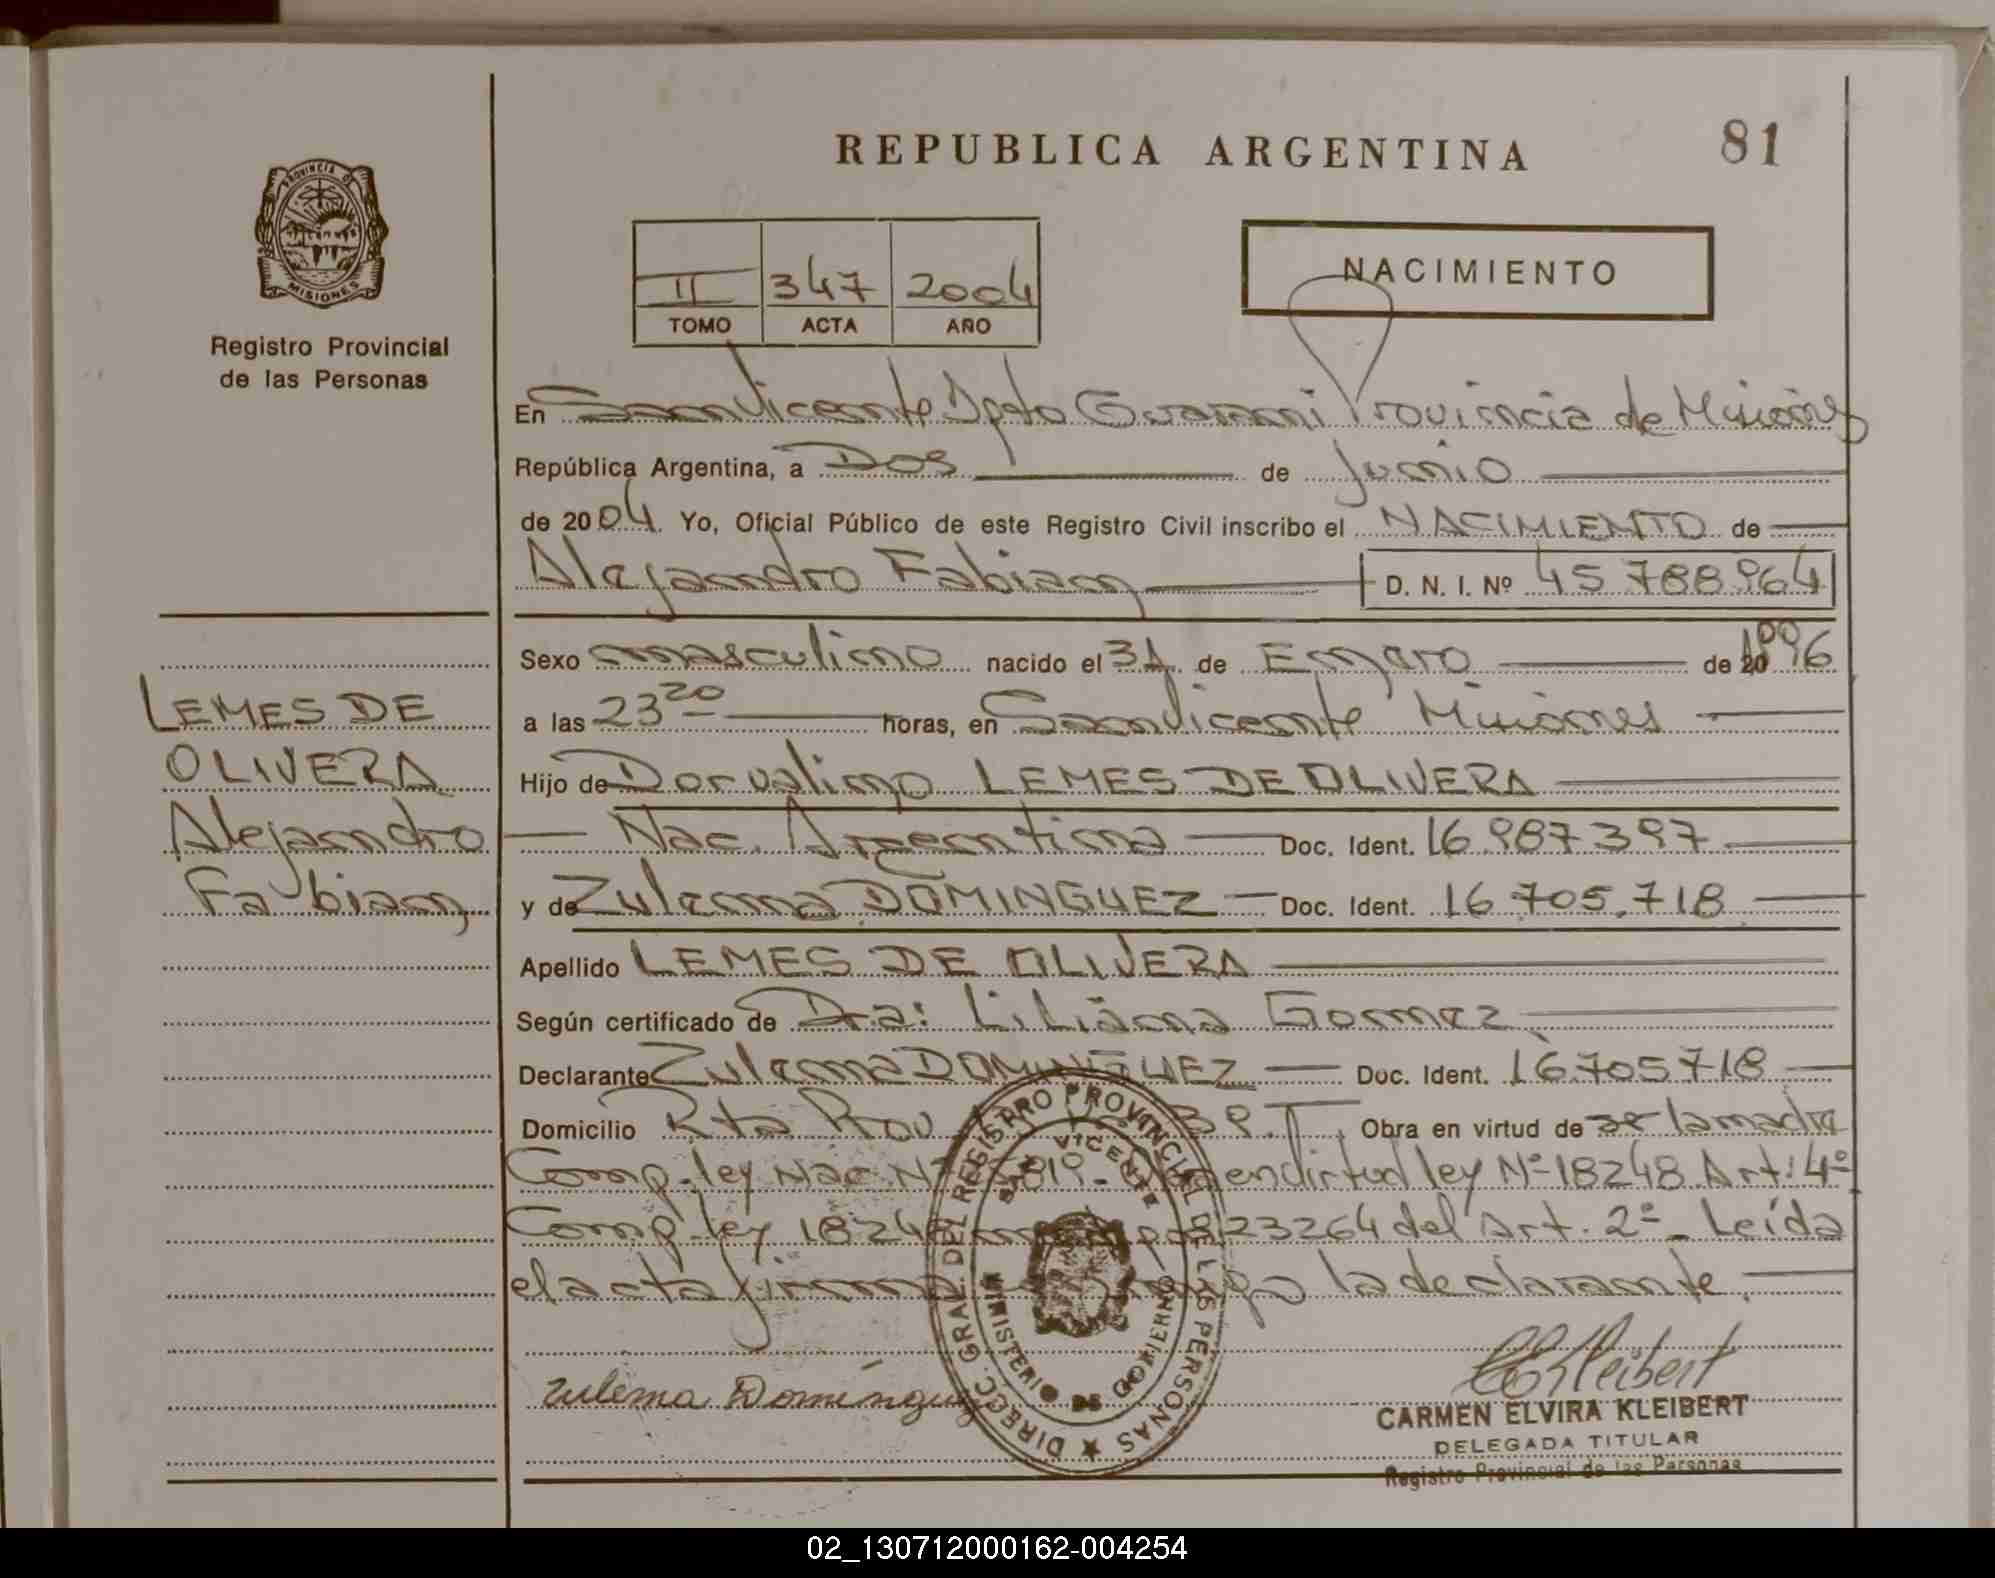 REPUBLICA ARGENTINA
81
PROVINCIA DE
MISIONES
Registro Provincial
de las Personas
II 347 2004
TOMO ACTA AÑO
NACIMIENTO
En San Vicente Dpto Guarani Provincia de Misiones
República Argentina, a Dos de Junio
de 2004. Yo, Oficial Público de este Registro Civil inscribo el NACIMIENTO de
Alejandro Fabian D. N. I. Nº 45 788964
Sexo masculino nacido el 31 de Enero de 1996
a las 23 20 horas, en San Vicente Misiones
Hijo de Dorvalino LEMES DE OLIVERA
Nac. Argentina Doc. Ident. 16.987397
y de Zulema DOMINGUEZ Doc. Ident. 16.705.718
Apellido LEMES DE OLIVERA
Según certificado de Dra: Liliana Gomez
Declarante Zulema DOMINGUEZ Doc. Ident. 16.705718
Domicilio Rta Prov Obra en virtud de ser la madre
Comp. ley Nac. Nº ley Nº 18248 Art: 4º
Comp. ley 18248 23264 del Art. 2º - Leída
el acta firma la declarante.
LEMES DE
OLIVERA
Alejandro
Fabian
Zulema Domínguez
DIRECC. GRAL. DEL REGISTRO PROVINCIAL DE LAS PERSONAS
SAN VICENTE
MINISTERIO DE GOBIERNO
CEKleibert
CARMEN ELVIRA KLEIBERT
DELEGADA TITULAR
Registro Provincial de las Personas
02_130712000162-004254